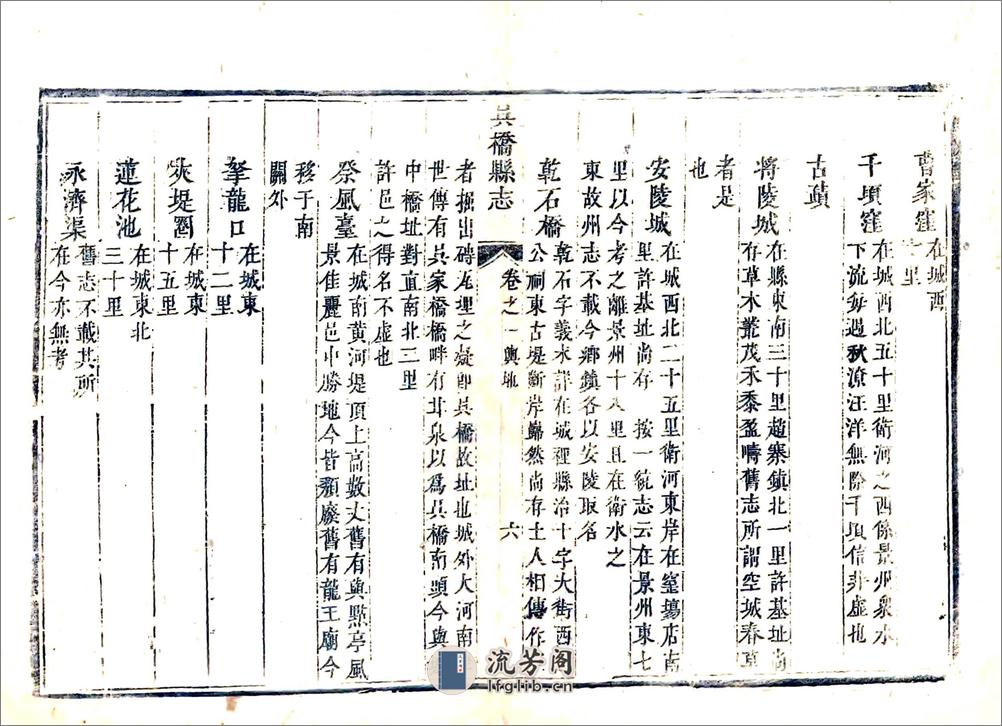 曹家窪在城西
十里
千頃窪在城西北五十里衛河之西係景州衆水
下流每遇秋潦汪洋無際千項信非虛也
古蹟
將陵城在縣東南三十里趙寨鎮北一里許基址尚
存草木叢茂禾黍盈疇舊志所謂空城春草
者是
也
安陵城在城西北二十五里衛河東岸在窑塲店南
里許基址尚存 按一統志云在景州東七
里以今考之離景州十八里且在衛水之
東故州志不載今鄉鎮各以安陵取名
乾石橋乾石字義未詳在城裡縣治十字大街西
公祠東古堤斷岸巋然尚存土人相傳作
吳橋縣志 卷之一輿地 六
者掘出磚瓦埋之凝卽吳橋故址也城外大河南
世傳有吳家橋橋畔有井泉以爲吳橋南頭今與
中橋址對直南北二里
許邑之得名不虛也
祭風臺在城南黄河堤頂上高數丈舊有與㸃亭風
景佳麗邑中勝地今皆頽廢舊有龍王廟今
移于南
關外
拏龍口在城東
十二里
夾堤圈在城東
十五里
蓮花池在城東北
三十里
永濟渠舊志不載其所
在今亦無考
流芳阁
lfglib.cn